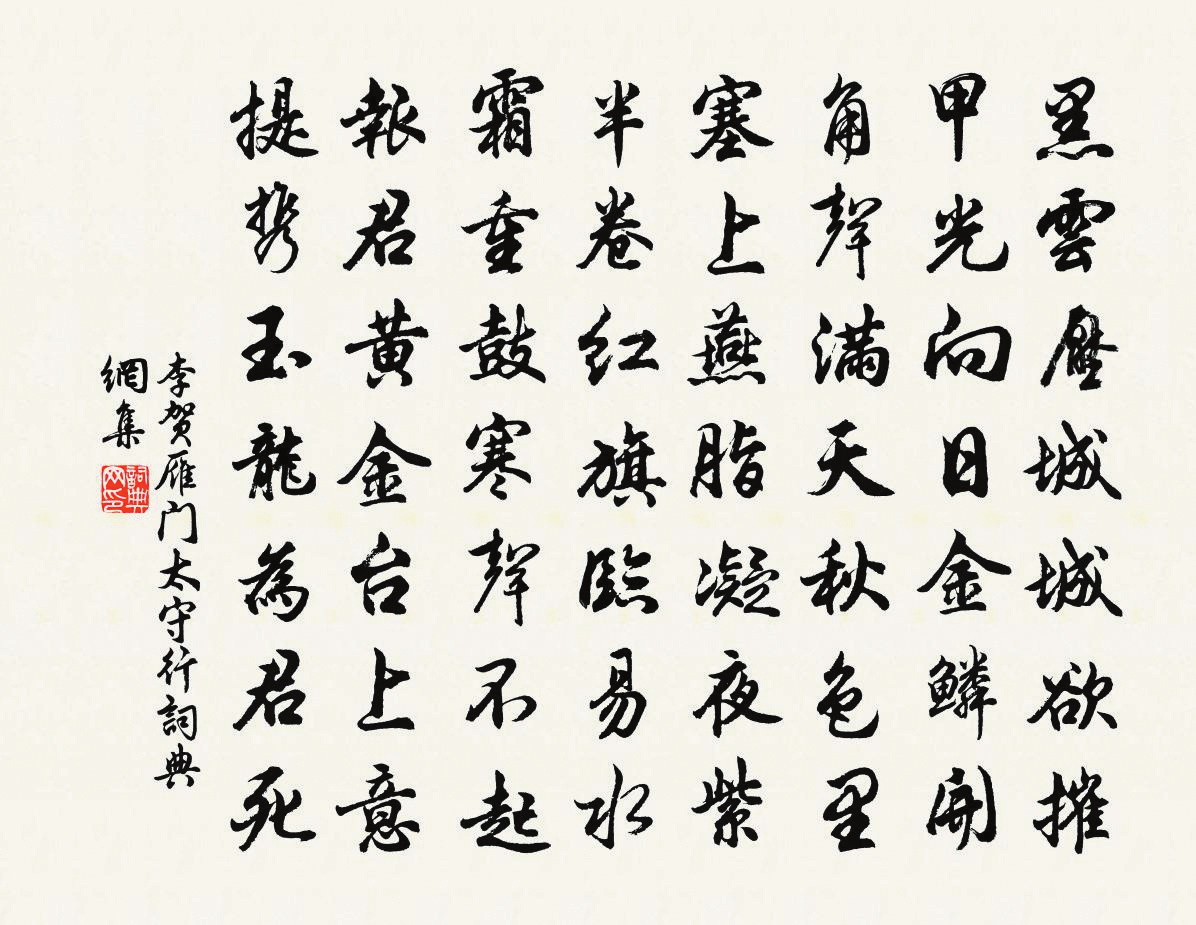 黑雲壓城城欲摧
甲光向日金鱗開
角聲滿天秋色里
塞上燕脂凝夜紫
半卷红旗臨易水
霜重鼓寒聲不起
報君黄金台上意
提携玉龍為君死
李贺雁门太守行詞典
網集
詞典
网印